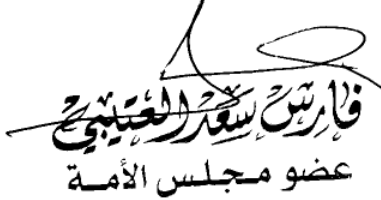 فارس سعد العتيبي
عضو مجلس الأمة